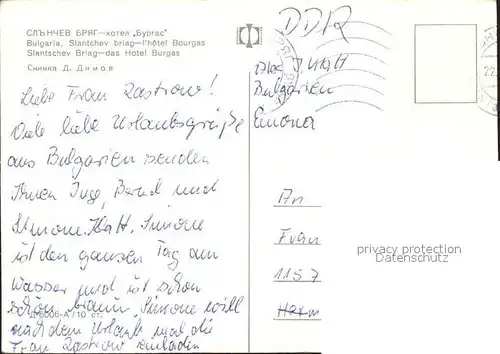 СЛЪНЧЕВ БРЯГ—хотел „Бургас"
Bulgaria, Slantchev briag—l'hôtel Bourgas
Slantschev Briag—das Hotel Burgas
Снимка Д. Димов
DDR
Liebe Frau Zastrow!
Viele liebe Urlaubsgrüße
aus Bulgarien senden
Ihnen Inge, Bernd und
Simone Hatt. Simone
ist den ganzen Tag am
Wasser und ist schon
schön braun. Simone will
nach dem Urlaub mal die
Frau Zastrow einladen
Bulgarien
Emona
An
Frau
1157
privacy protection
AKPOOL.DE